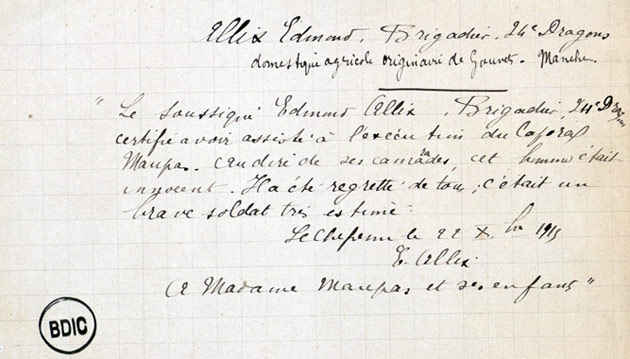 Allix Edmond. Brigadier, 24e Dragons
domestique agricole originaire de Gouvets - Manche.
" Le soussigné Edmond Allix, Brigadier, 24e Dragons
certifie avoir assisté à l'exécution du Caporal
Maupas. Au dire de ses camarades, cet homme était
innocent. Il a été regretté de tous, c'était un
brave soldat très estimé.
Le 22 Xbre 1915
E. Allix
A Madame Maupas et ses enfants "
BDIC